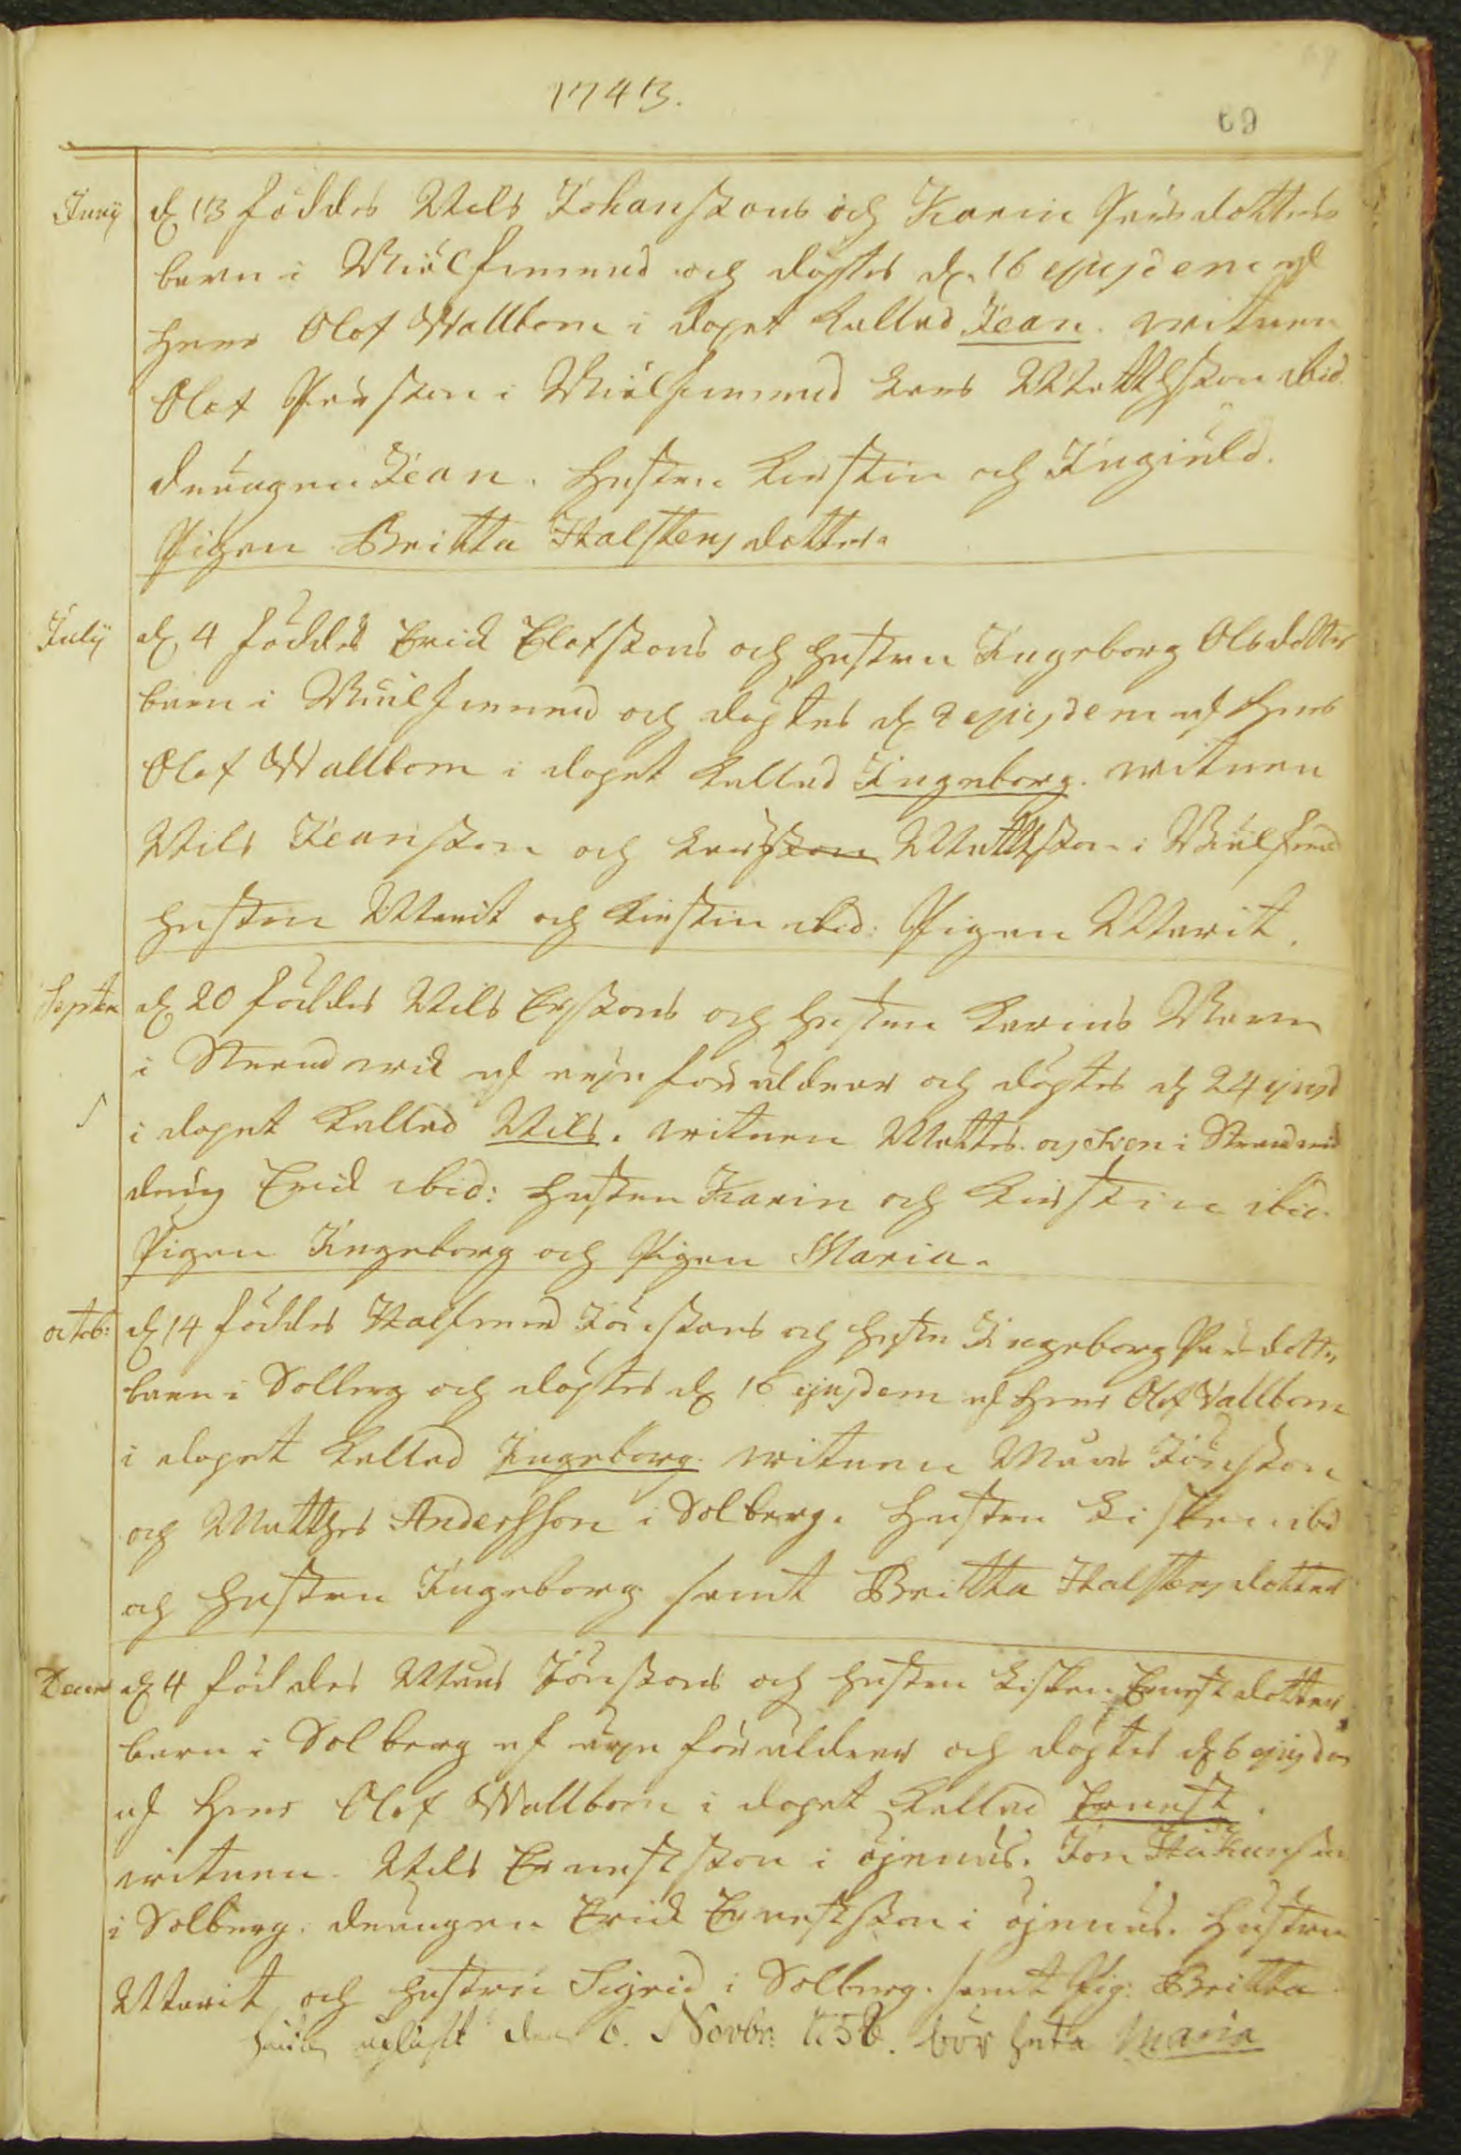 1743.
69
Junij d. 13 föddes Nils Johanssons och Karin Persdotters
barn i och döptes d. 16 ejusdem af
Herr Olof Wallbom i dopet kallad Jean. witnen
Olof Persson i Lars Matthsson ibid.
drängen Jean. hustru Kirstin och Ingiäld.
Pigan Britta Halstensdotter.
Julij d. 4 föddes Erick Elofssons och hustru Ingeborg Olsdotter
barn i och döptes d. 9 ejusdem af Herr
Olof Wallbom i dopet kallad Ingeborg. witnen
Nils Jeansson och Lars Mattsson i
hustru Marit och Kirstin ibid: Pigan Marit.
Septem d. 20 föddes Nils Erssons och hustru Karins Barn
i Strandwik af ächta föräldrar och döptes d. 24 ejusd
i dopet kallad Nils. witnen Mattes och Sven i Strandwik
dräng Erik ibid: hustru Karin och Kirstin ibid.
Pigan Ingeborg och Pigan Maria.
octob: d. 14 föddes Halfward Jönssons och hustru Ingeborg Persdotter
barn i Solberg och döptes d. 16 ejusdem af Herr Olof Wallbom
i dopet kallad Ingeborg. witnen Måns Jönsson
och Matthes Andersson i Solberg. hustru Lisken ibid
och hustru Ingeborg samt Britta Halstensdotter
Decem d. 4 föddes Måns Jönssons och hustru Lisken Ernstdotter
barn i Solberg af ächta föräldrar och döptes d. 6 ejusdem
af Herr Olof Wallbom i dopet kallad Ernst.
witnen. Nils Ernestsson i öjenäs. Jon Håkansson
i Solberg. drängen Erick Ernestsson i öjenäs. hustru
Marit och hustru Sigrid i Solberg. samt Pig: Britta
upläst den 6. Novbr. bör heta Maria